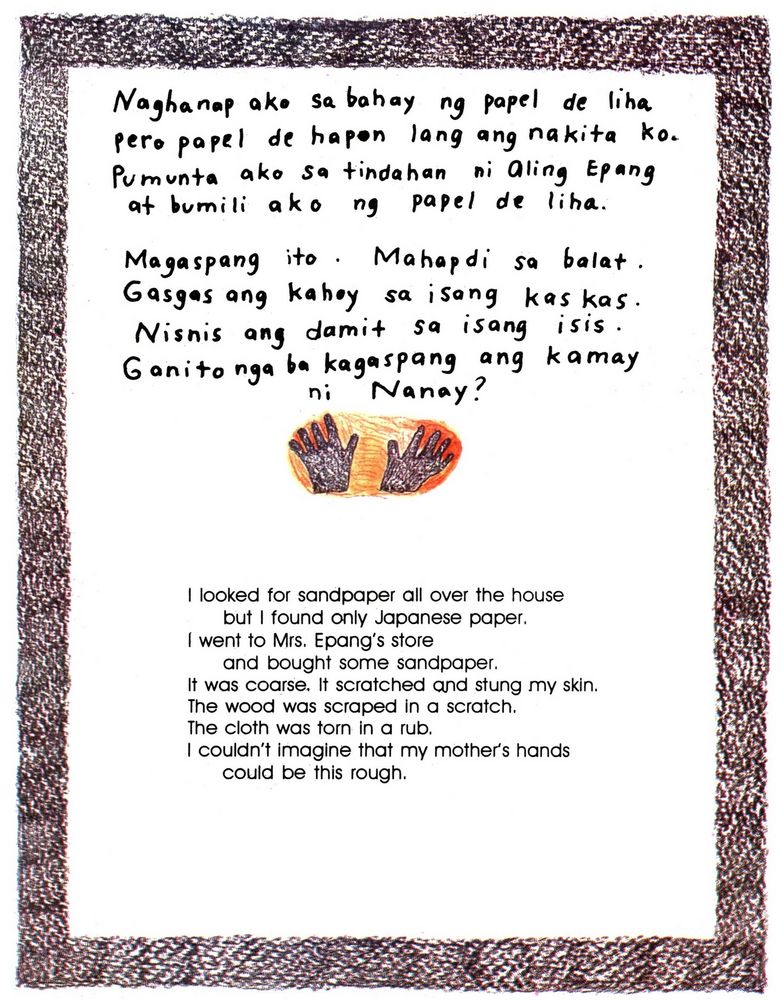 Naghanap ako sa bahay ng papel de liha
pero papel de hapon lang ang nakita ko.
Pumunta ako sa tindahan ni Aling Epang
at bumili ako ng papel de liha.
Magaspang ito. Mahapdi sa balat.
Gasgas ang kahoy sa isang kaskas.
Nisnis ang damit sa isang isis.
Ganito nga ba kagaspang ang kamay
ni Nanay?
I looked for sandpaper all over the house
but I found only Japanese paper.
I went to Mrs. Epang's store
and bought some sandpaper.
It was coarse. It scratched and stung my skin.
The wood was scraped in a scratch.
The cloth was torn in a rub.
I couldn't imagine that my mother's hands
could be this rough.